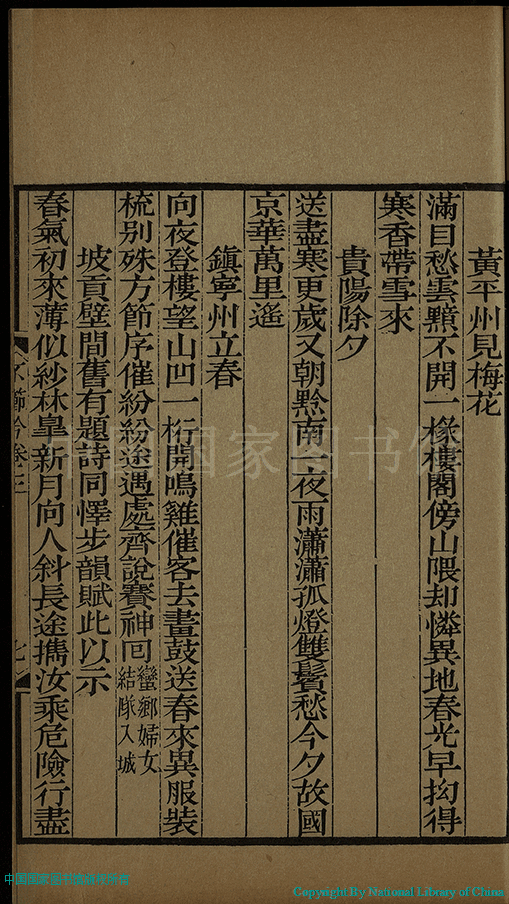 黃平州見梅花
滿目愁雲黯不開一椽樓閣傍山隈却憐異地春光早抝得
寒香帶雪來
貴陽除夕
送盡寒更歲又朝黔南一夜雨瀟瀟孤燈雙鬢愁今夕故國
京華萬里遙
鎮寧州立春
向夜登樓望山凹一桁開鳴雞催客去畫鼓送春來異服裝
梳別殊方節序催紛紛途遇處齊說賽神回蠻鄉婦女結隊入城
坡貢壁間舊有題詩同懌步韻賦此以示
春氣初來薄似紗林皐新月向人斜長途攜汝乘危險行盡
卷三
七
中国国家图书馆
Copyright By National Library of China